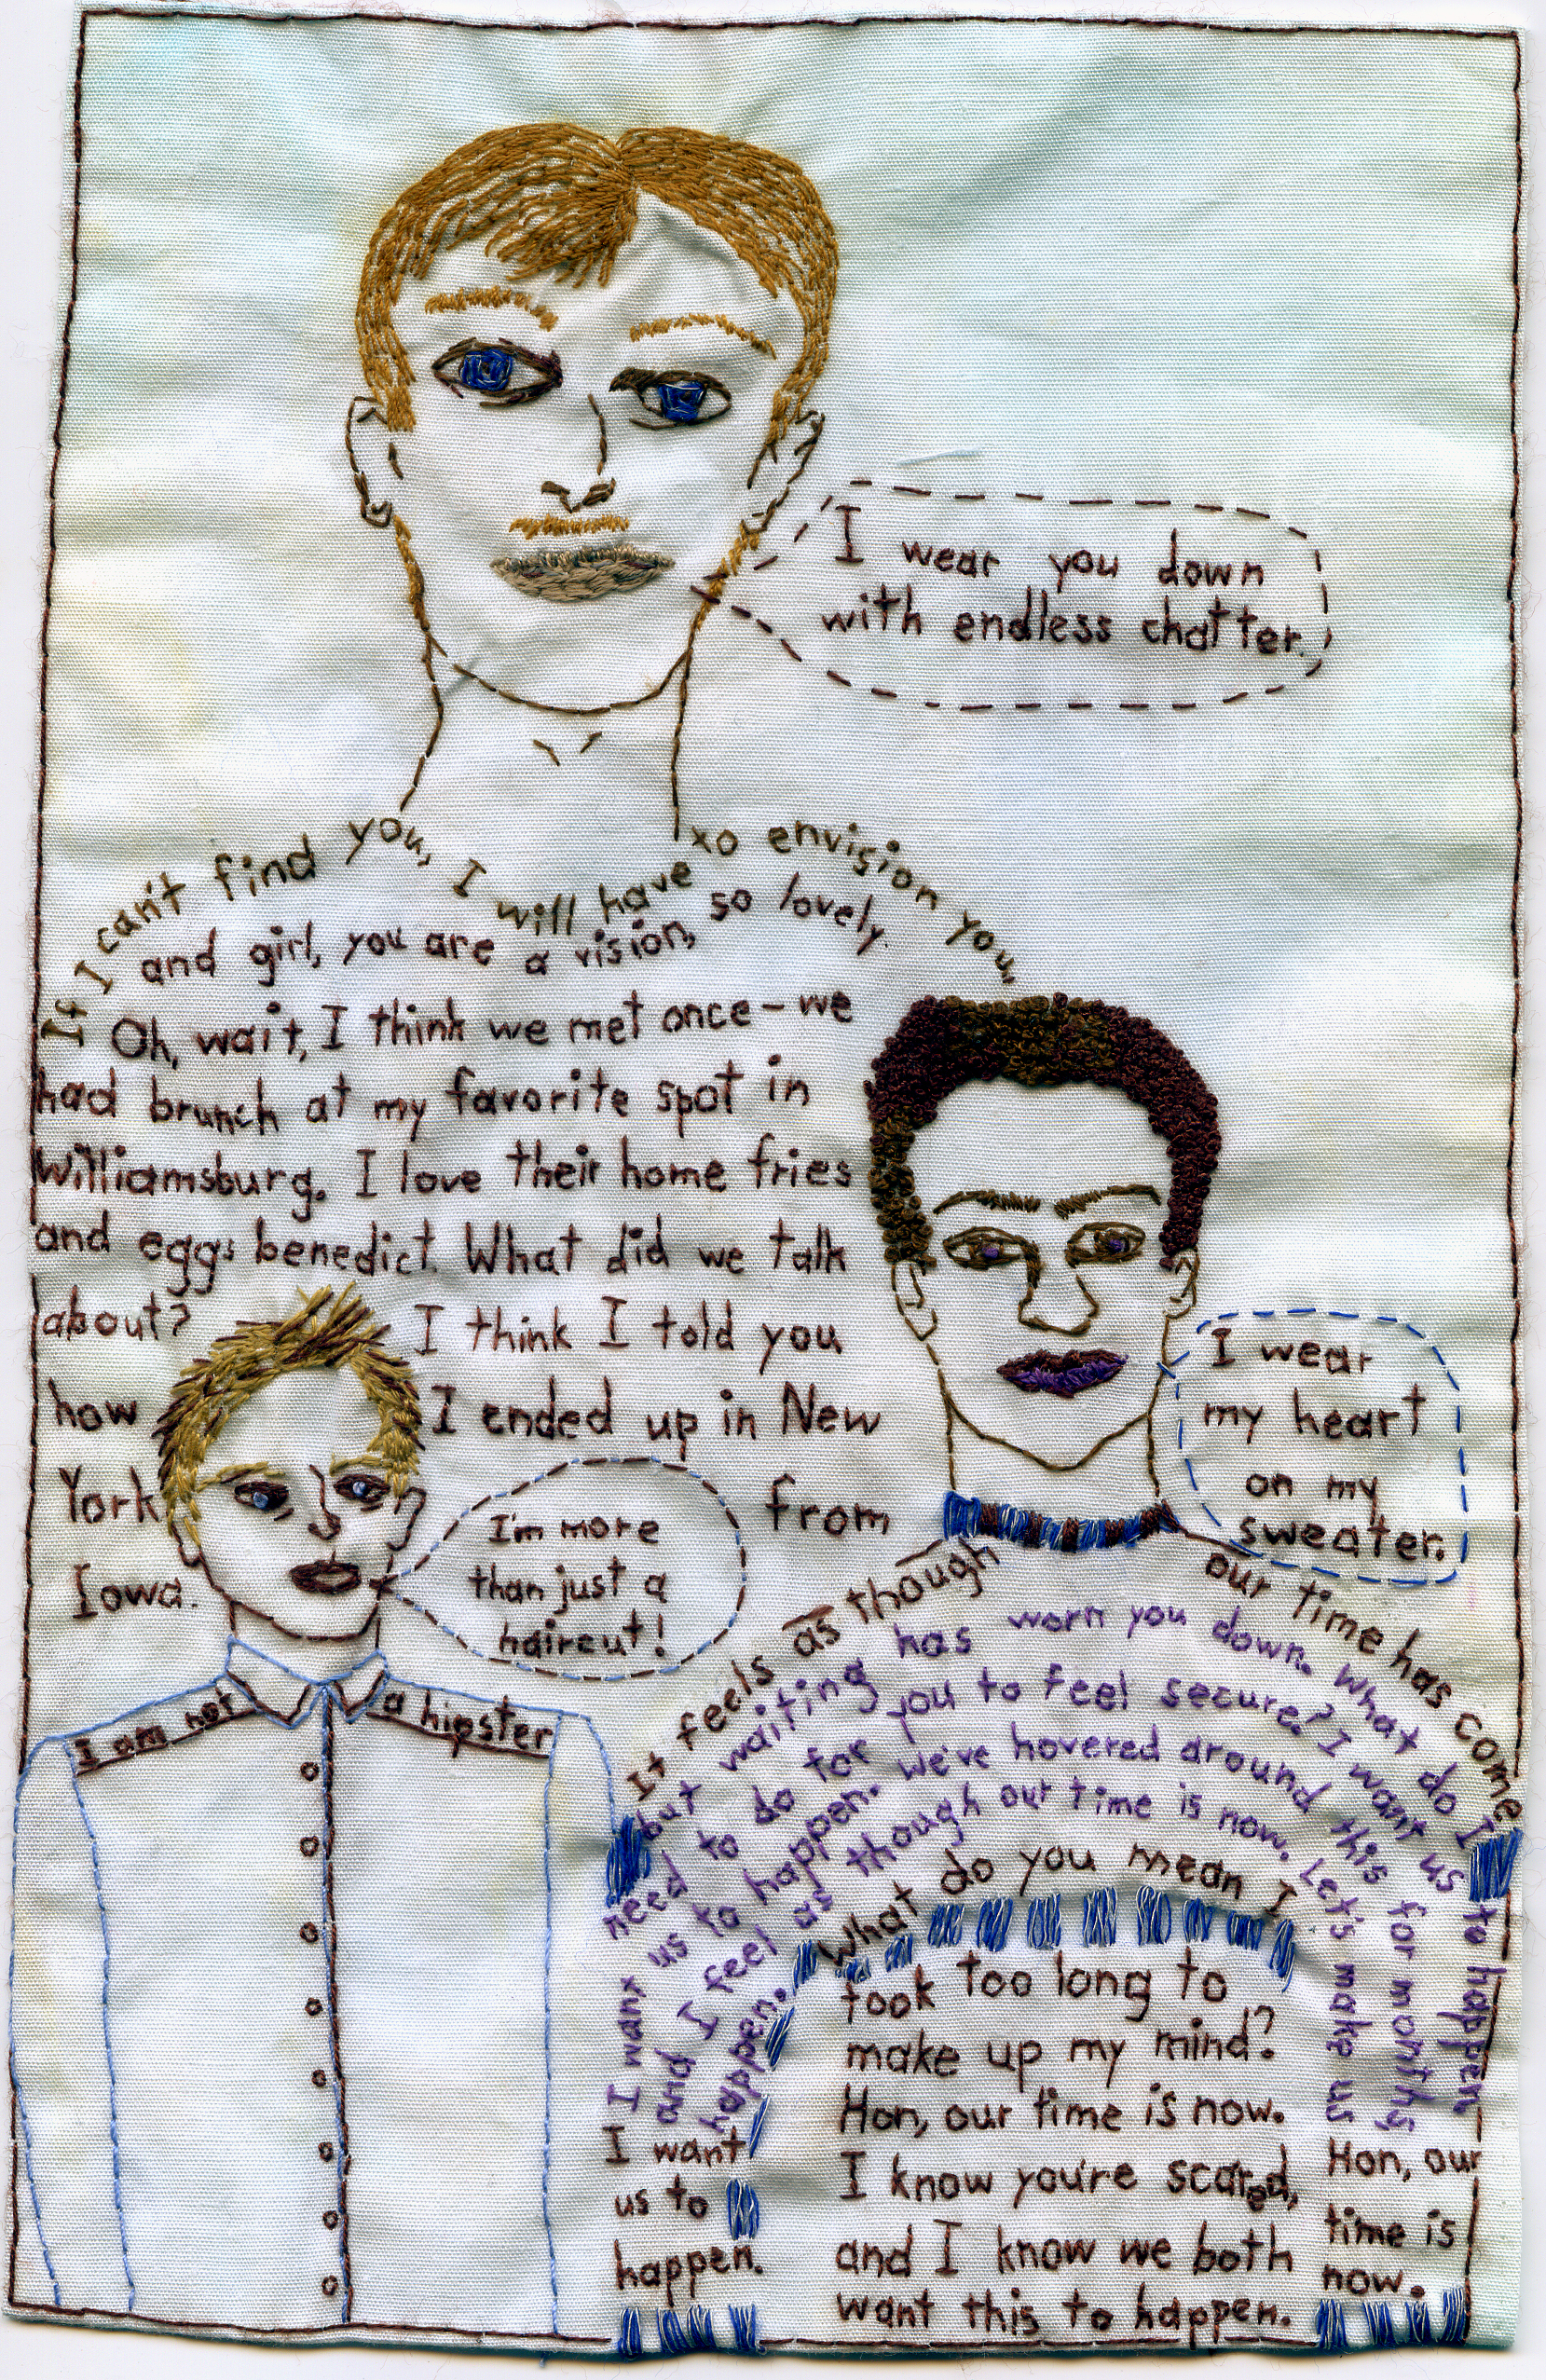 I wear you down
with endless chatter.
If I can't find you, I will have xo envision you,
and girl, you are a vision, so lovely.
Oh, wait, I think we met once - we
had brunch at my favorite spot in
Williamsburg. I love their home fries
and eggs benedict. What did we talk
about? I think I told you
how I ended up in New
York from
Iowa.
I'm more
than just a
haircut!
I am not a hipster
I wear
my heart
on my
sweater.
It feels as though our time has come
but waiting has worn you down. What do I
need to do for you to feel secure? I want us to happen
I want us to happen. We've hovered around this for months
and I feel as though our time is now. Let's make us
happen.
What do you mean I
took too long to
make up my mind?
Hon, our time is now.
I know you're scared,
and I know we both
want this to happen.
I want
us to
happen.
Hon, our
time is
now.